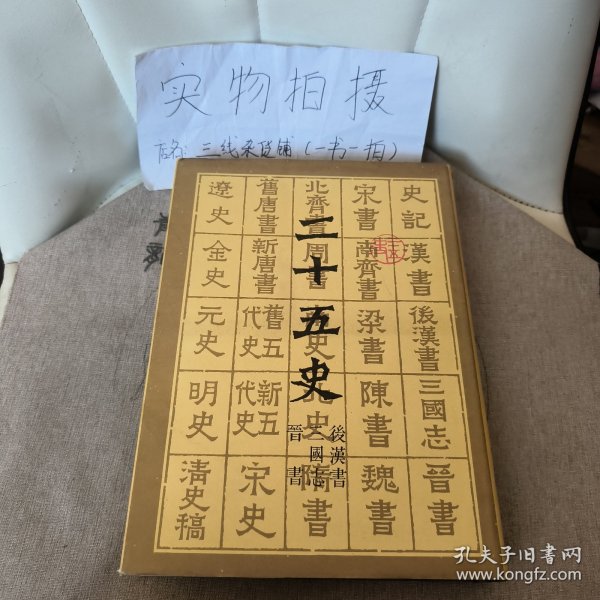 实物拍摄
店名: 三线杂货铺 (一书一拍)
二十五史
後漢書
三國志
晉書
史記
漢書
後漢書
三國志
晉書
宋書
南齊書
梁書
陳書
魏書
北齊書
周書
史
北史
隋書
舊唐書
新唐書
舊五代史
新五代史
宋史
遼史
金史
元史
明史
清史稿
孔夫子旧书网
www.kongfz.com